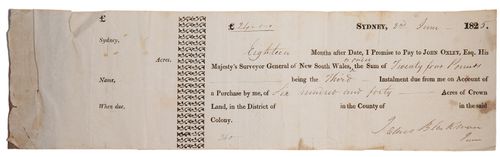 £
Sydney,
Acres.
Name,
When due.
£ 24 0 0 SYDNEY, 2d June 1825.
Eighteen Months after Date, I Promise to Pay to JOHN OXLEY, Esq. His
Majesty's Surveyor General of New South Wales, the Sum of Twenty four Pounds
being the Third Instalment due from me on Account of
a Purchase by me, of Six hundred and forty Acres of Crown
Land, in the District of in the County of in the said
Colony.
James Blackman
Junr